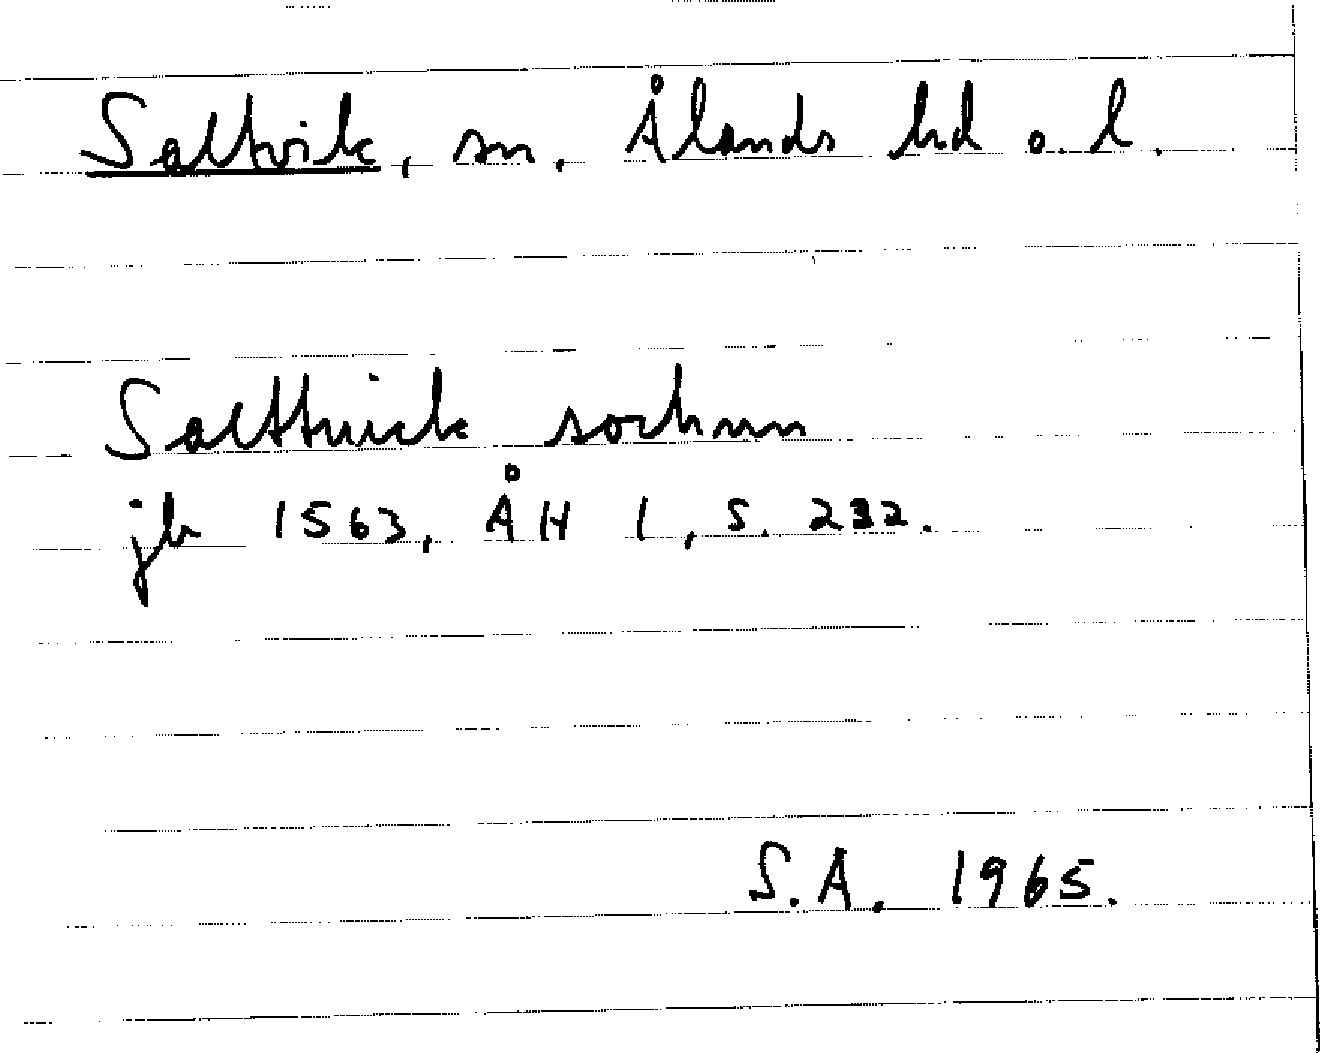 Saltvik, sn. Ålands hd o. l.
Salttuick sochnn
jb 1563, ÅH 1, s. 232.
S.A. 1965.